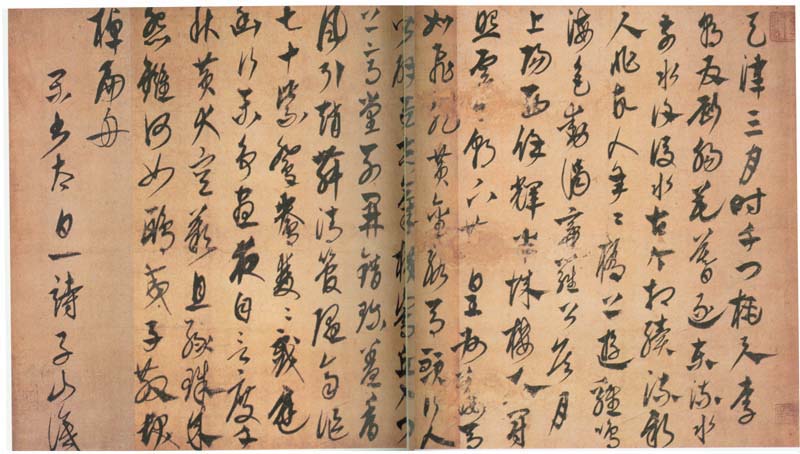 天津三月時千門桃與李
朝為斷腸花暮逐東流水
前水復後水古今相續流新
人非故人年々橋上遊雞鳴
海色動謁帝羅公侯月
上陽西餘輝半城樓衣冠
照雲日朝下散皇州鞍馬
如飛龍黃金絡馬頭行人
皆辟易志氣橫嵩丘入門
上高堂列鼎錯珍羞香
風引趙舞清管隨齊謳
七十紫鴛鴦雙々戲庭
幽行樂爭晝夜自言度千
秋黃犬空歎息綠珠成
怨讎何如鴟夷子散髮
棹扁舟
太白一詩子山識